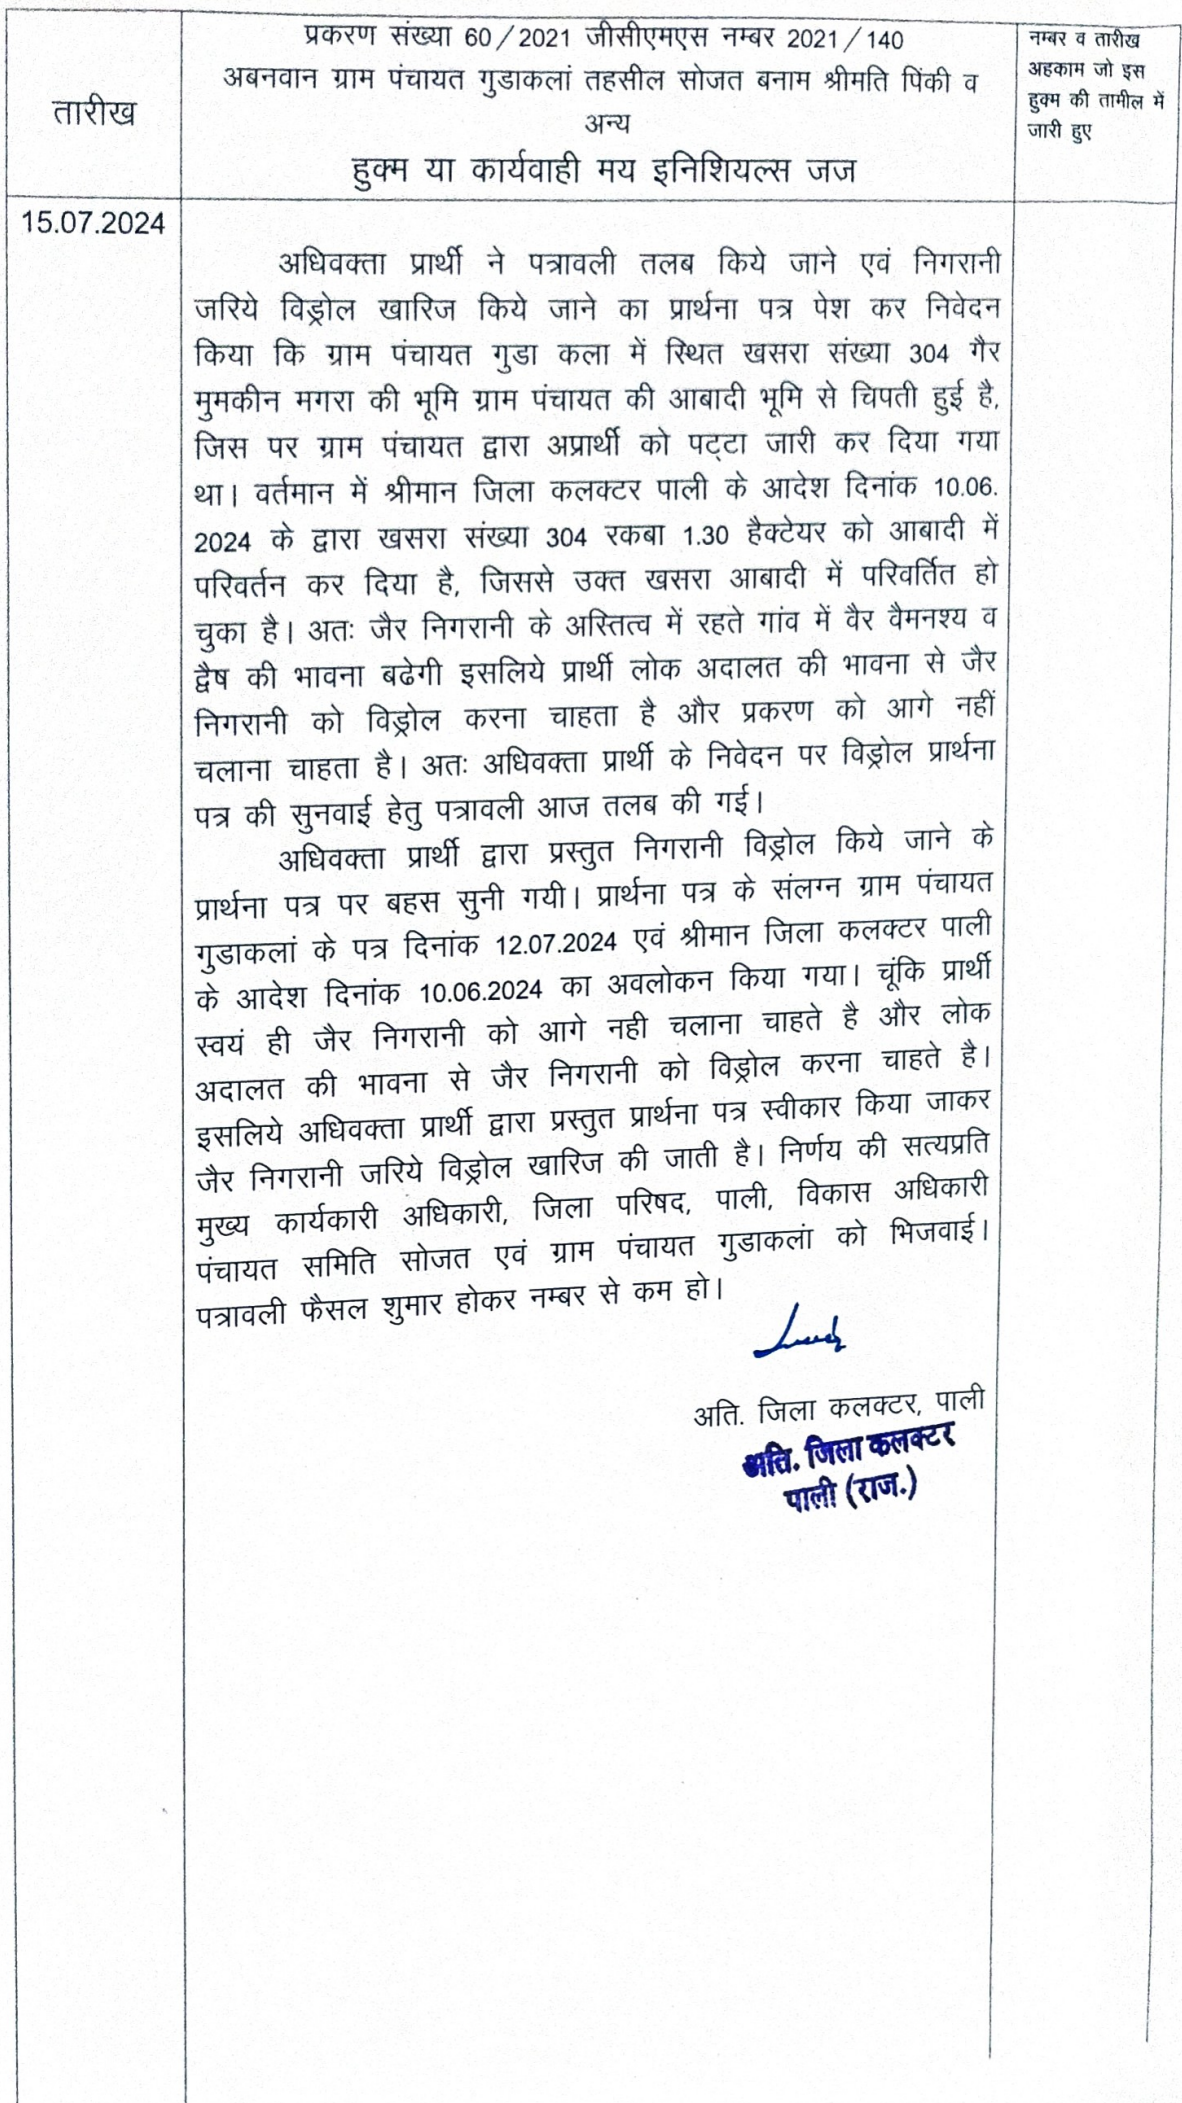 तारीख
प्रकरण संख्या 60/2021 जीसीएमएस नम्बर 2021/140
अबनवान ग्राम पंचायत गुडाकलां तहसील सोजत बनाम श्रीमति पिंकी व
अन्य
हुक्म या कार्यवाही मय इनिशियल्स जज
नम्बर व तारीख
अहकाम जो इस
हुक्म की तामील में
जारी हुए
15.07.2024
अधिवक्ता प्रार्थी ने पत्रावली तलब किये जाने एवं निगरानी
जरिये विड्रोल खारिज किये जाने का प्रार्थना पत्र पेश कर निवेदन
किया कि ग्राम पंचायत गुडा कला में स्थित खसरा संख्या 304 गैर
मुमकीन मगरा की भूमि ग्राम पंचायत की आबादी भूमि से चिपती हुई है,
जिस पर ग्राम पंचायत द्वारा अप्रार्थी को पट्टा जारी कर दिया गया
था। वर्तमान में श्रीमान जिला कलक्टर पाली के आदेश दिनांक 10.06.
2024 के द्वारा खसरा संख्या 304 रकबा 1.30 हैक्टेयर को आबादी में
परिवर्तन कर दिया है, जिससे उक्त खसरा आबादी में परिवर्तित हो
चुका है। अतः जैर निगरानी के अस्तित्व में रहते गांव में वैर वैमनश्य व
द्वैष की भावना बढेगी इसलिये प्रार्थी लोक अदालत की भावना से जैर
निगरानी को विड्रोल करना चाहता है और प्रकरण को आगे नहीं
चलाना चाहता है। अतः अधिवक्ता प्रार्थी के निवेदन पर विड्रोल प्रार्थना
पत्र की सुनवाई हेतु पत्रावली आज तलब की गई।
अधिवक्ता प्रार्थी द्वारा प्रस्तुत निगरानी विड्रोल किये जाने के
प्रार्थना पत्र पर बहस सुनी गयी। प्रार्थना पत्र के संलग्न ग्राम पंचायत
गुडाकलां के पत्र दिनांक 12.07.2024 एवं श्रीमान जिला कलक्टर पाली
के आदेश दिनांक 10.06.2024 का अवलोकन किया गया। चूंकि प्रार्थी
स्वयं ही जैर निगरानी को आगे नही चलाना चाहते है और लोक
अदालत की भावना से जैर निगरानी को विड्रोल करना चाहते है।
इसलिये अधिवक्ता प्रार्थी द्वारा प्रस्तुत प्रार्थना पत्र स्वीकार किया जाकर
जैर निगरानी जरिये विड्रोल खारिज की जाती है। निर्णय की सत्यप्रति
मुख्य कार्यकारी अधिकारी, जिला परिषद, पाली, विकास अधिकारी
पंचायत समिति सोजत एवं ग्राम पंचायत गुडाकलां को भिजवाई।
पत्रावली फैसल शुमार होकर नम्बर से कम हो।
अति. जिला कलक्टर, पाली
अति. जिला कलक्टर
पाली (राज.)